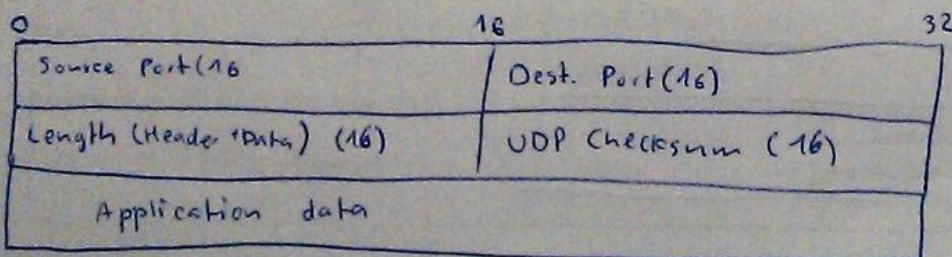 0 16 32
Source Port(16 Dest. Port(16)
Length (Header+Data) (16) UDP Checksum (16)
Application data